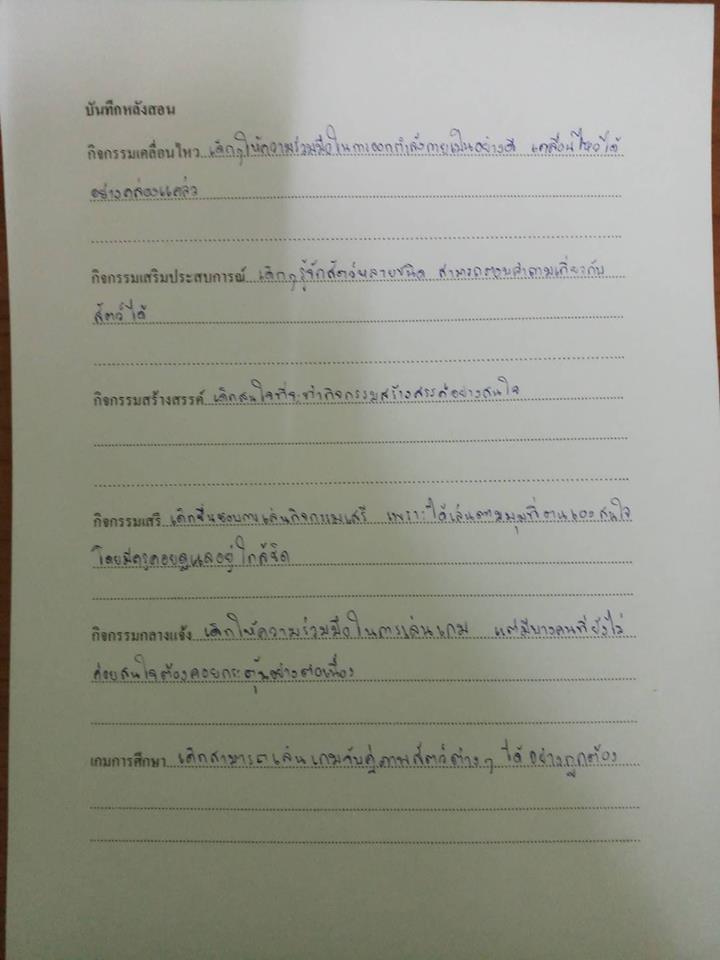 บันทึกหลังสอน
กิจกรรมเคลื่อนไหว เด็กๆให้ความร่วมมือในการออกกำลังกายเป็นอย่างดี เคลื่อนไหวได้
อย่างคล่องแคล่ว
กิจกรรมเสริมประสบการณ์ เด็กๆรู้จักสัตว์หลายชนิด สามารถตอบคำถามเกี่ยวกับ
สัตว์ได้
กิจกรรมสร้างสรรค์ เด็กสนใจที่จะทำกิจกรรมสร้างสรรค์อย่างสนใจ
กิจกรรมเสรี เด็กชื่นชอบการเล่นกิจกรรมเสรี เพราะได้เล่นตามมุมที่ตนเองสนใจ
โดยมีครูคอยดูแลอยู่ใกล้ชิด
กิจกรรมกลางแจ้ง เด็กให้ความร่วมมือในการเล่นเกม แต่มีบางคนที่ยังไม่
ค่อยสนใจต้องคอยกระตุ้นอย่างต่อเนื่อง
เกมการศึกษา เด็กสามารถเล่นเกมจับคู่ภาพสัตว์ต่างๆ ได้อย่างถูกต้อง